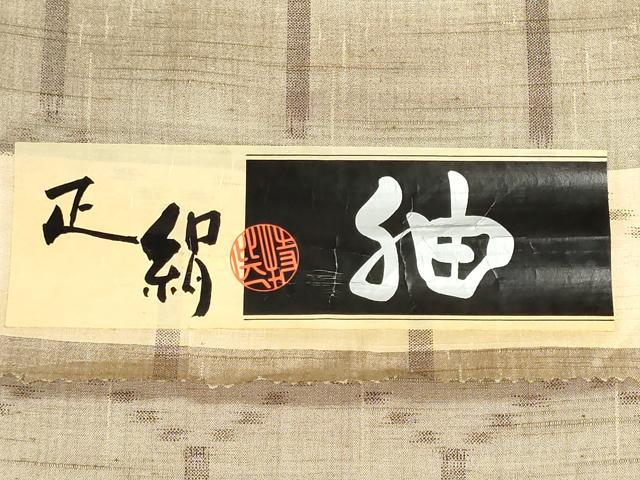 正絹
紬